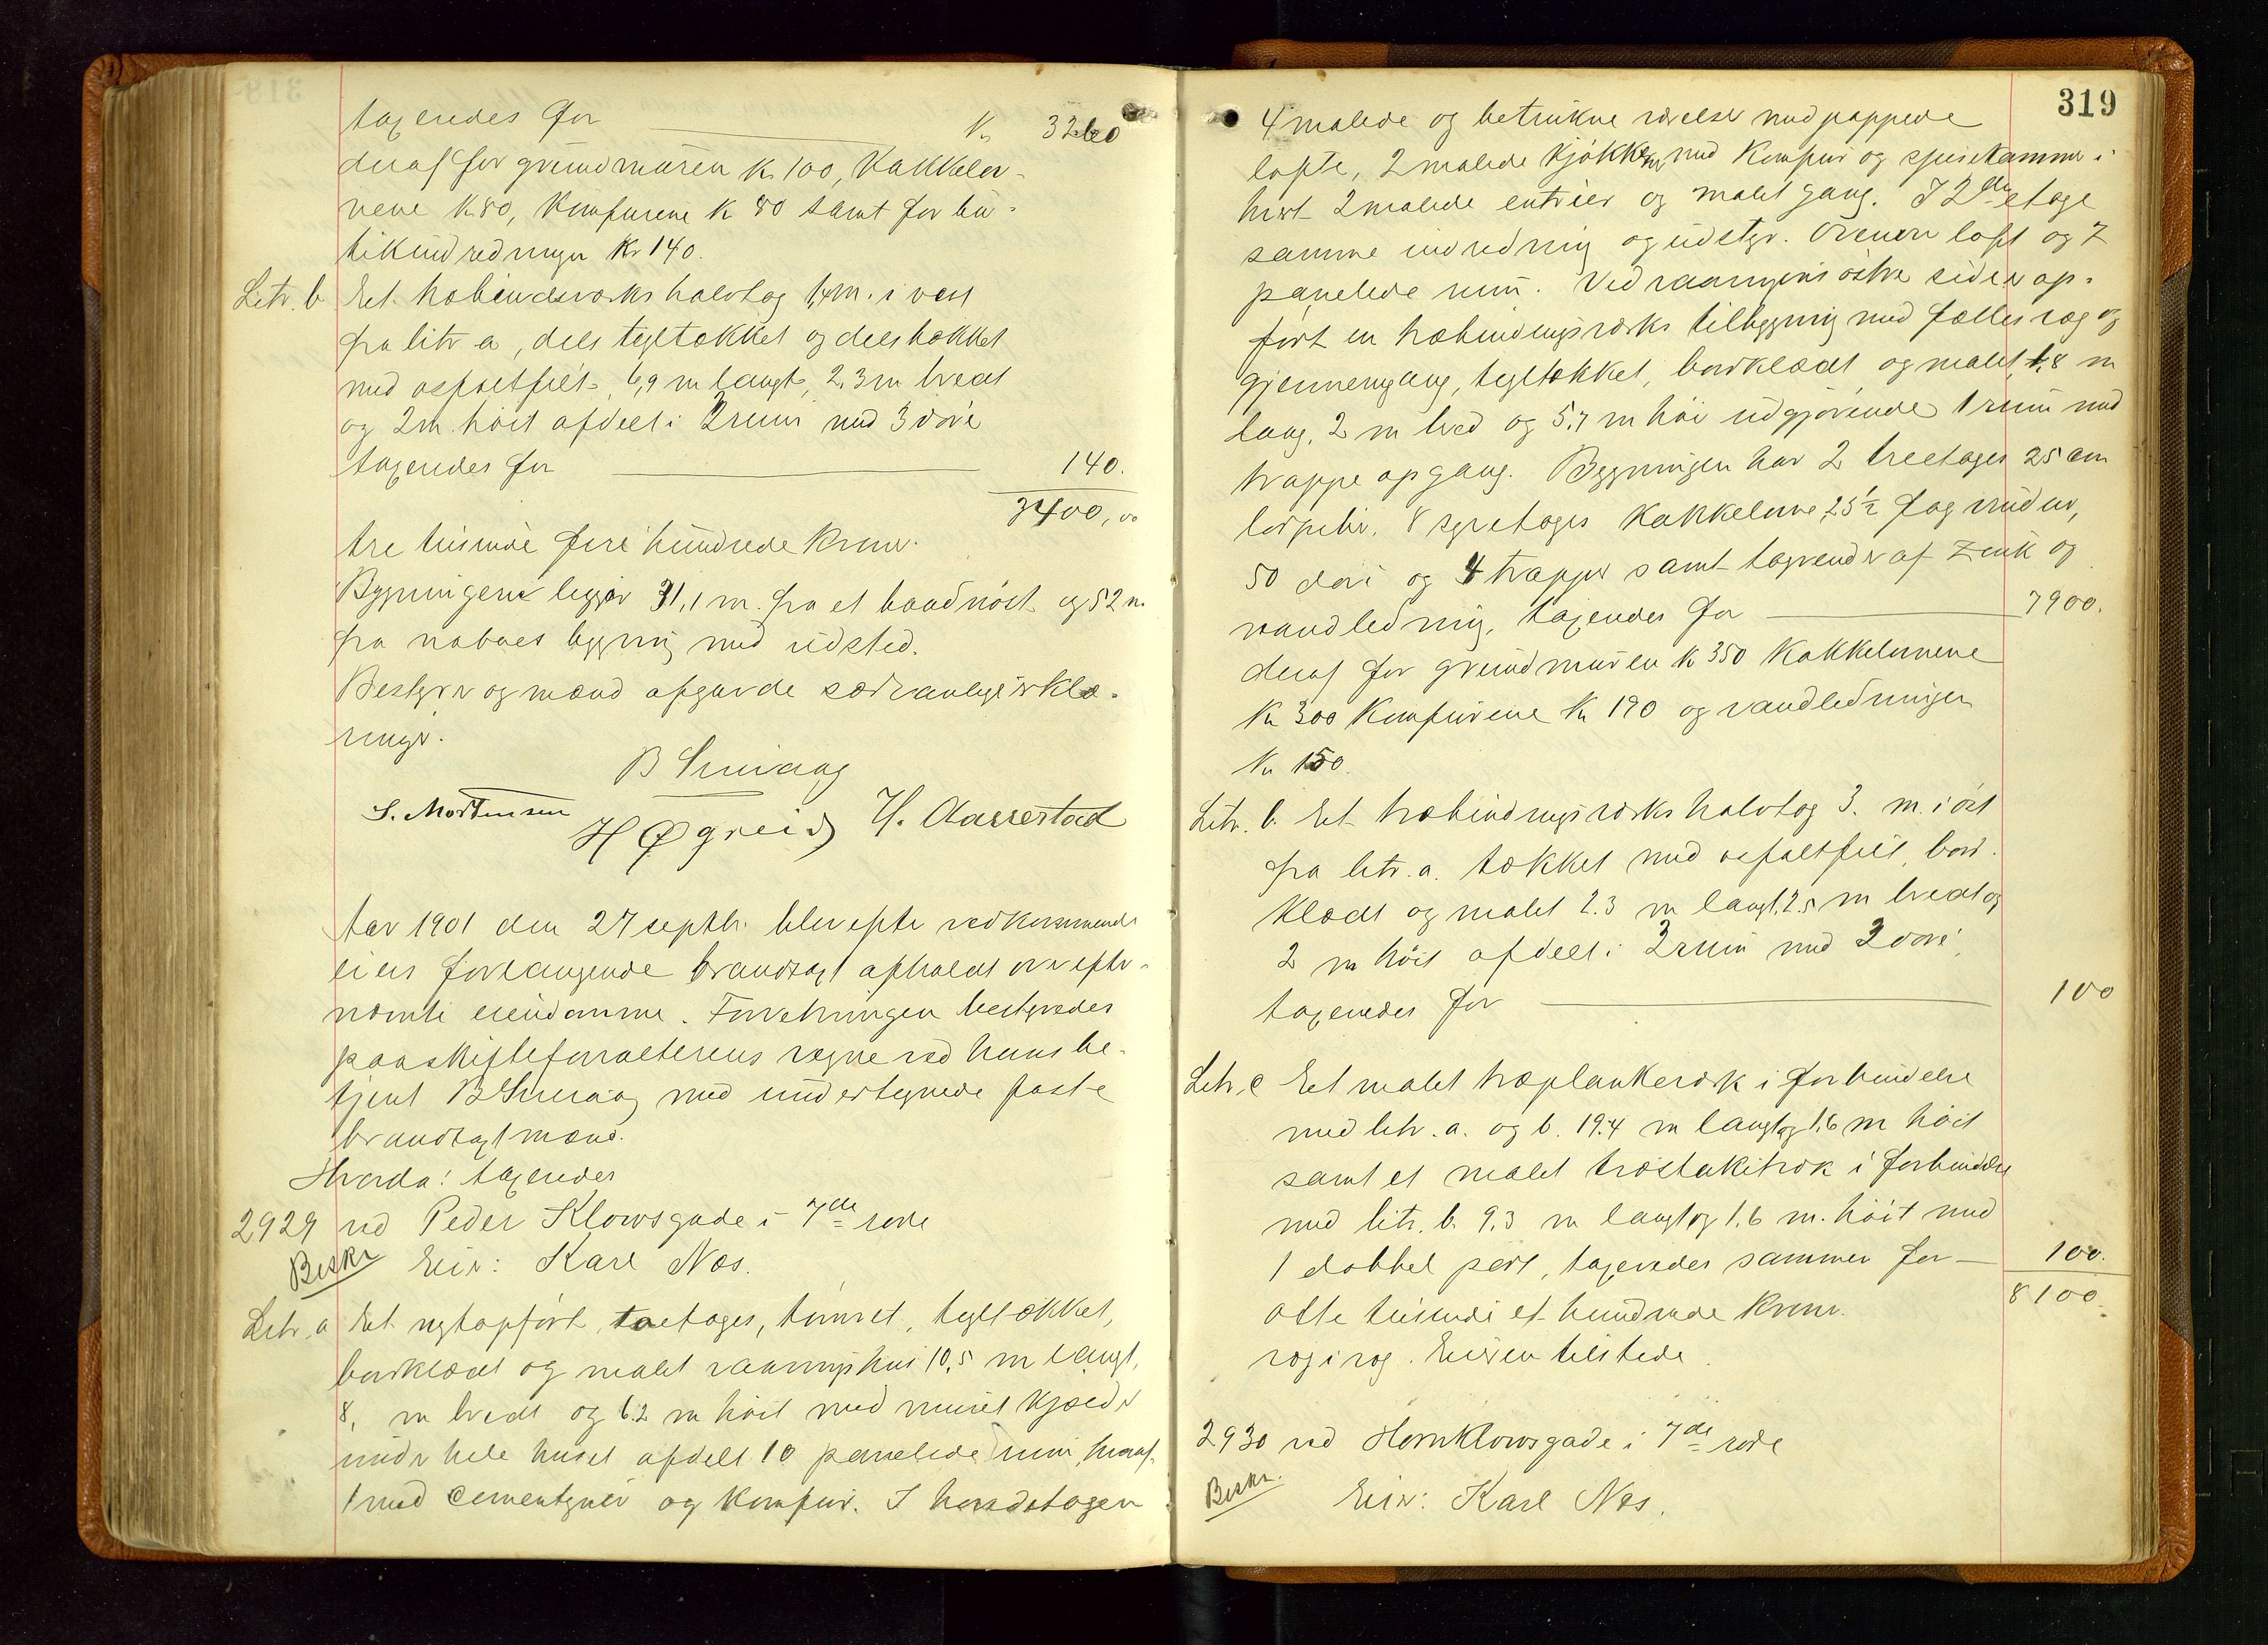 taxeredes for Kr 3260
deraf for grundmuren Kr 100, Kakkelov-
nene K 80, Komfurene K 80 samt for bu-
tikindredningen Kr 140.
Litr. b Et træbindværks halvtag 1,4 m. i vest
fra litr a, dels tegltækket og dels tækket
med asfaltfilt, 6,9 m langt, 2,3 m bredt
og 2 m. høit afdelt i 2 rum med 3 døre
taxeredes for 140.
3400,00
tre tusinde fire hundrede Kroner.
Bygningerne ligger 31,1 m. fra et baadnøst og 52 m.
fra naboes bygning med ildsted.
Bestyrer og mænd afgavde sædvanlige erklæ-
ringer.
B Smaaag
S. Mortensen H Øgreid H. Aarrestad
Aar 1901 den 27 septbr. blev efter vedkommende
eiers forlangende brandtaxt afholdt over efter-
nævnte eiendomme. Forretningen bestyredes
paa skifteforvalterens vegne ved hans be-
tjent B Smaaag med undertegnede faste
brandtaxtmænd.
Hvorda: taxeredes
2929 ved Peder Klowsgade i 7de rode
Beskr Eier: Karl Næs.
Litr. a Et nyt opført toetages, tømret, tegltækket,
bordklædt og malet vaaningshus 10,5 m langt,
8, m bredt og 6.2 m høit med muret Kjælder
under hele huset afdelt 10 panelede rum, hvoraf
1 med cementgulv og komfur. I 1ste etagen
319
4 malede og betrukne værelser med pappede
lofte, 2 malede Kjøkkener med Komfur og spisekammer i
hvert 2 malede entrier og malet gang. I 2den etage
samme indredning og udstyr. Ovenover loft og 7
panelede rum. Ved vaaningens østre side er op-
ført en træbindingsværks tilbygning med fælles væg og
gjennemgang, tegltækket, bordklædt og malet, 4,8 m
lang, 2 m bred og 5,7 m høi udgjørende 1 rum med
trappe opgang. Bygningen har 2 treetages 25 cm
lospiber, 8 syvetages Kakkelovne, 25½ fag vinduer,
50 døre og 4 trapper samt tagrender af zink og
vandledning, taxeredes for 7900.
deraf for grundmuren Kr 350 Kakkelovnene
Kr 300 Komfurene Kr 190 og vandledningen
Kr 150.
Litr. b. Et træbindingsværks halvtag 3. m. i øst
fra litr. a. tækket med asfaltfilt, bord-
klædt og malet 2.3 m langt, 2.5 m bredt og
2 m høit afdelt i 2 rum med 2 døre,
taxeredes for 100
Litr. c Et malet træplankeværk i forbindelse
med litr. a. og b. 19.4 m langt og 1,6 m høit
samt et malet træstakitværk i forbindelse
med litr. b. 9,3 m langt og 1,6 m. høit med
1 dobbel port, taxeredes sammen for 100.
8100.
otte tusinde et hundrede Kroner.
væg i væg. Eieren tilstede.
2930 ved Hornklowsgade i 7de rode
Beskr. Eier: Karl Næs.